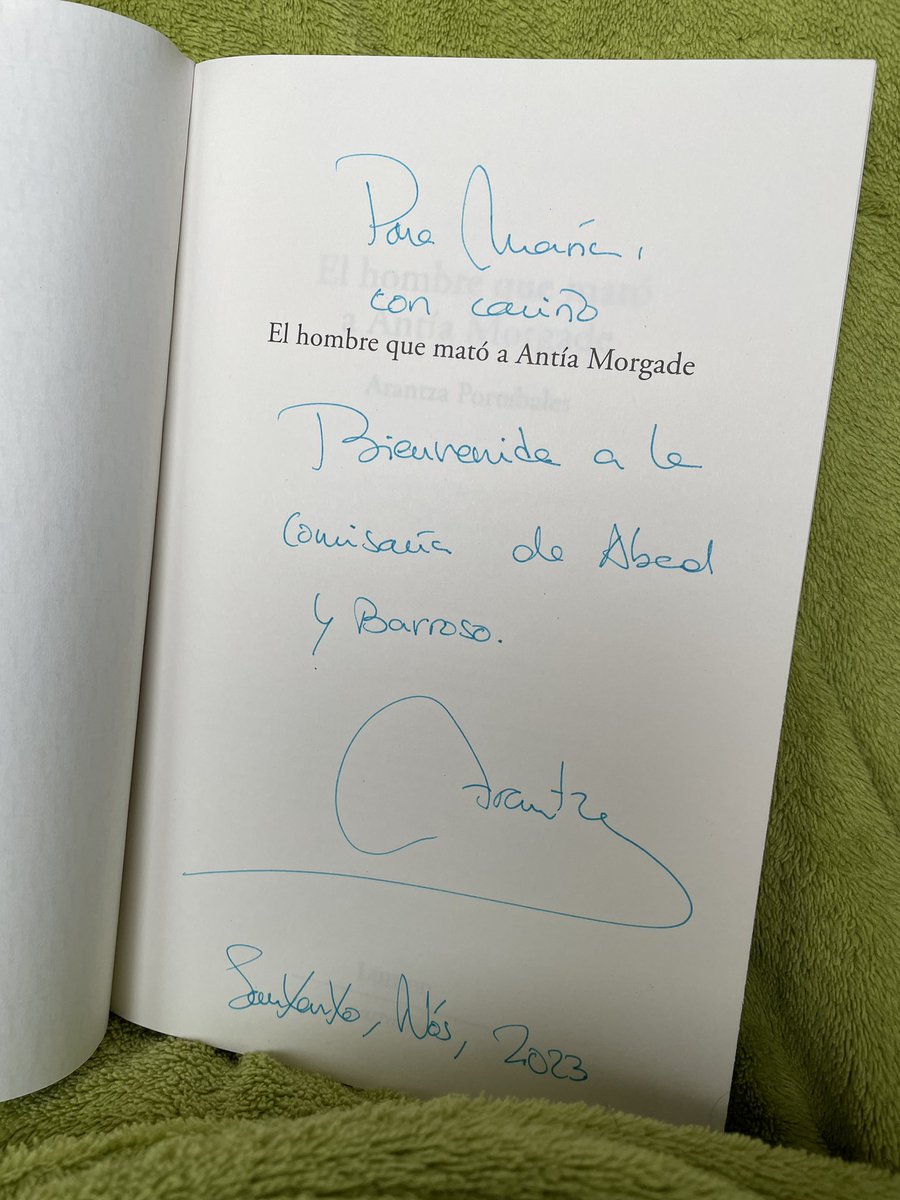 Para María,
con cariño
El hombre que mató a Antía Morgade
Bienvenida a la
Comisaría de Abad
y Barroso.
Arantza
Sanxenxo, Nós, 2023